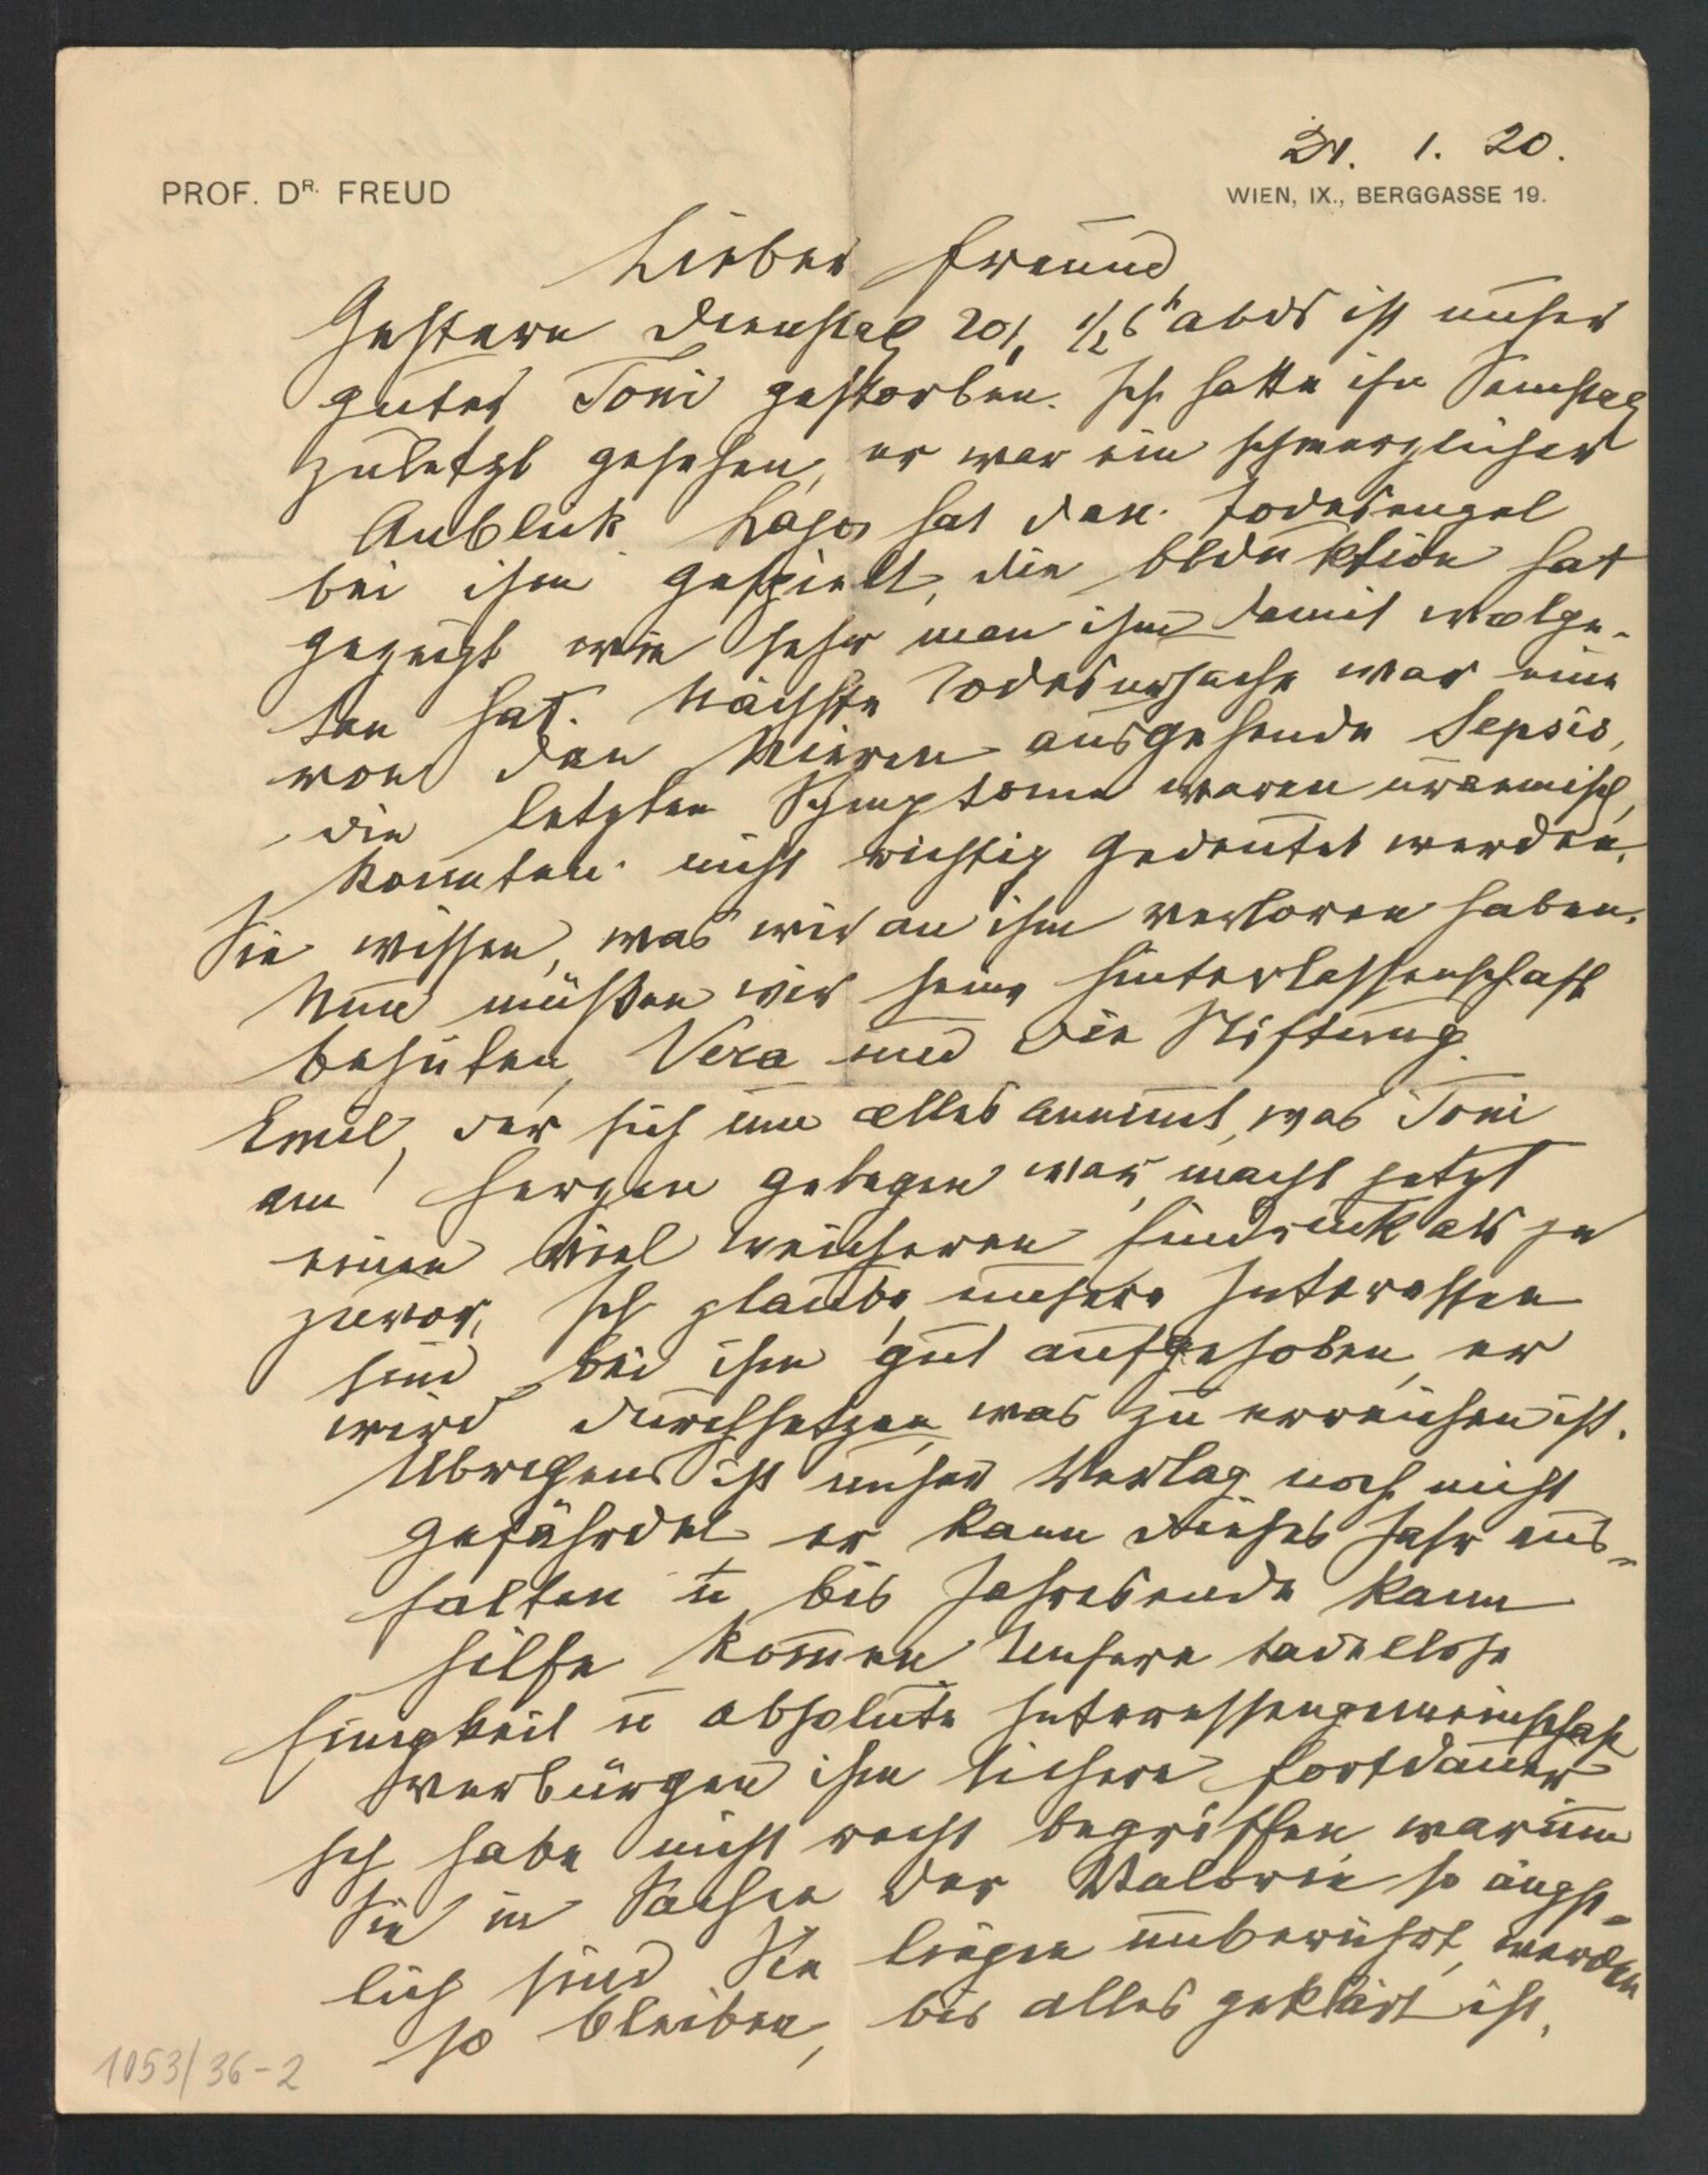 21. 1. 20.
PROF. DR. FREUD
WIEN, IX., BERGGASSE 19.
Lieber Freund
Gestern Dienstag 20/1 ½6h abds ist unser
guter Toni gestorben. Ich hatte ihn Samstag
zuletzt gesehen, er war ein schmerzlicher
Anblick. Lajos hat den Todesengel
bei ihm gespielt, die Obduktion hat
gezeigt wie sehr man ihm damit wolge-
tan hat. Nächste Todesursache war eine
von den Nieren ausgehende Sepsis,
die letzten Symptome waren uraemisch,
konnten nicht richtig gedeutet werden.
Sie wissen, was wir an ihm verloren haben.
Nun müßen wir seine Hinterlassenschaft
behüten, Vera und die Stiftung.
Emil, der sich um alles annimmt, was Toni
am Herzen gelegen war, macht jetzt
einen viel weicheren Eindruck als je
zuvor. Ich glaube, unsere Interessen
sind bei ihm gut aufgehoben, er
wird durchsetzen was zu erreichen ist.
Übrigens ist unser Verlag noch nicht
gefährdet er kann dieses Jahr aus-
halten u bis Jahresende kann
Hilfe kommen. Unsere tadellose
Einigkeit u absolute Interessengemeinschaft
verbürgen ihm sichere Fortdauer
Ich habe nicht recht begriffen, warum
Sie in Sachen der so ängst-
lich sind. Sie liegen unberührt, werden
so bleiben, bis alles geklärt ist.
1053/36-2